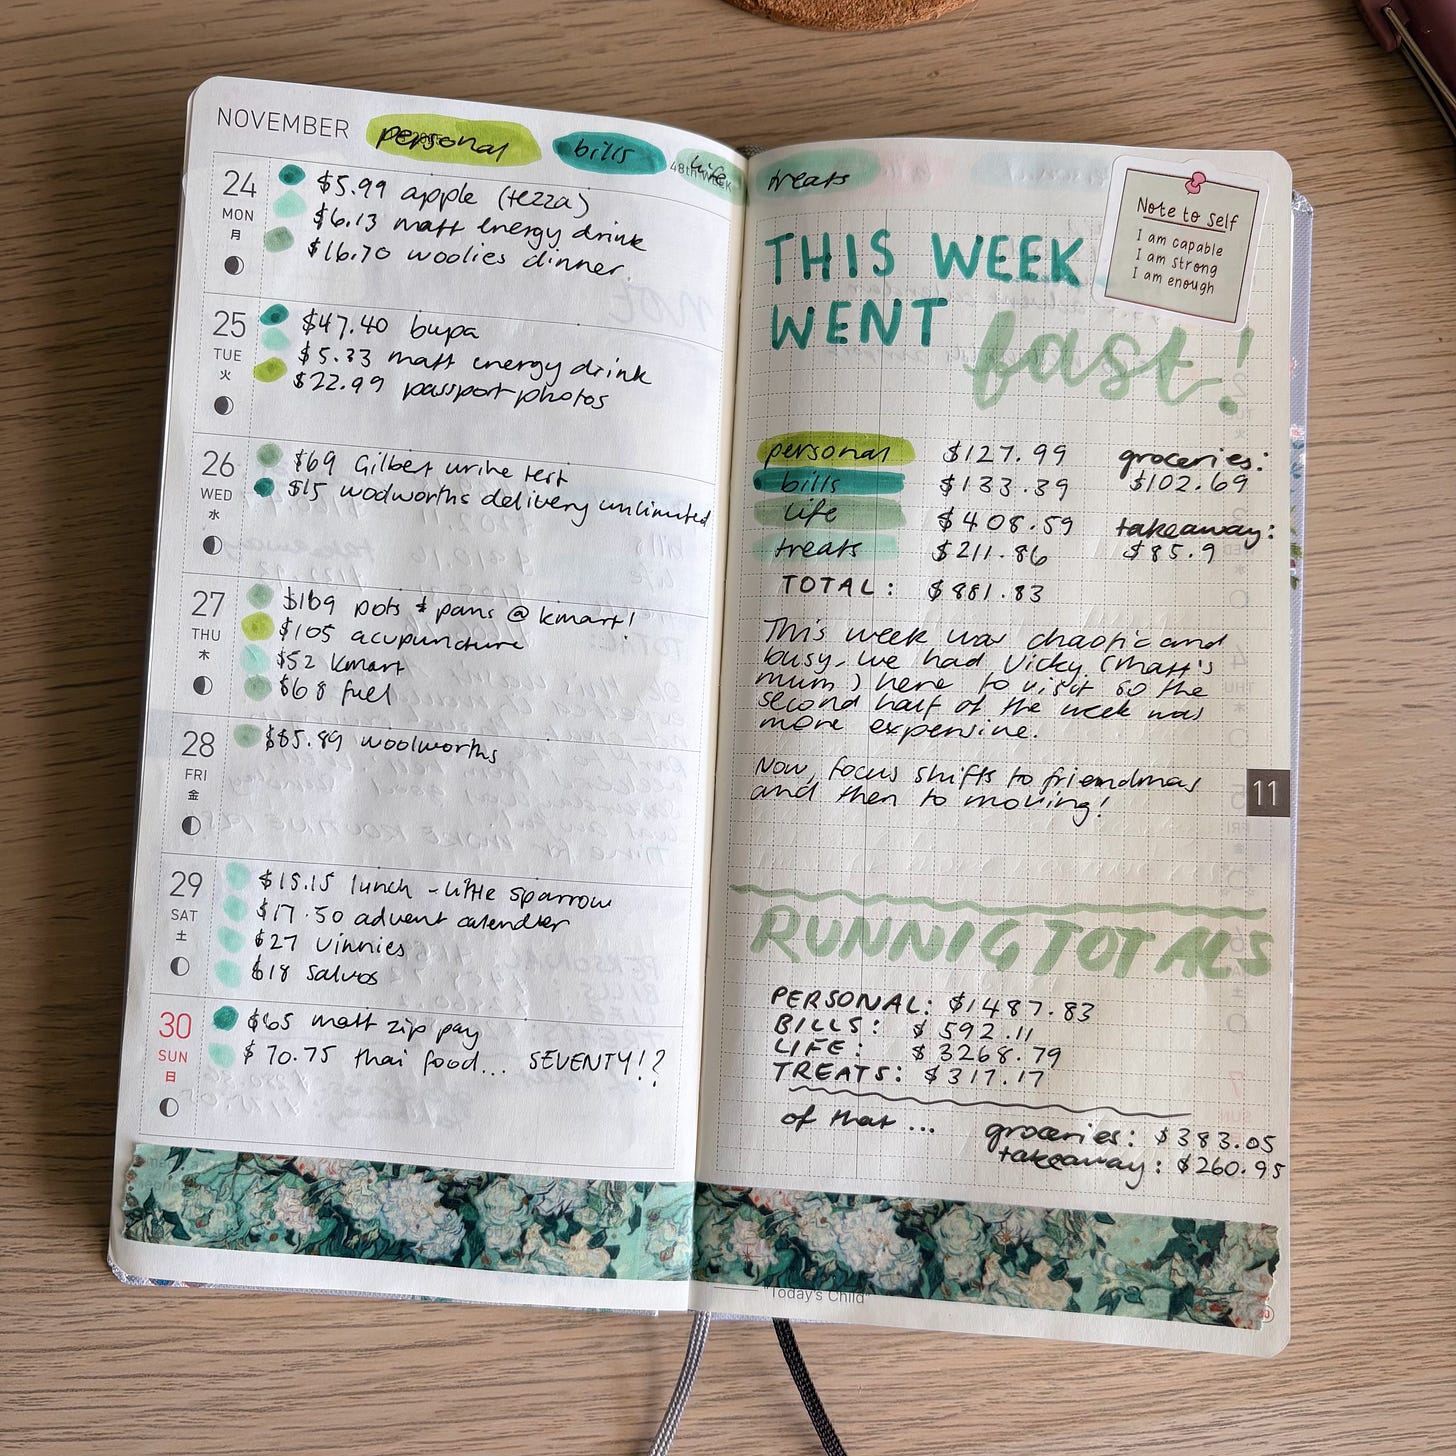 NOVEMBER
personal
bills
48th WEEK
life
24
MON
月
$5.99 apple (tezza)
$6.13 matt energy drink
$16.70 woolies dinner.
25
TUE
火
$47.40 bupa
$5.33 matt energy drink
$22.99 passport photos
26
WED
水
$69 Gilbert urine test
$15 woolworths delivery unlimited
27
THU
木
$169 pots & pans @ kmart!
$105 acupuncture
$52 kmart
$68 fuel
28
FRI
金
$85.89 woolworths
29
SAT
土
$15.15 lunch - little sparrow
$17.50 advent calendter
$27 vinnies
$18 salvos
30
SUN
日
$65 matt zip pay
$70.75 thai food... SEVENTY!?
treats
Note to self
I am capable
I am strong
I am enough
THIS WEEK
WENT fast!
personal $127.99
bills $133.39
life $408.59
treats $211.86
TOTAL: $881.83
groceries:
$102.69
takeaway:
$85.9
This week was chaotic and
busy. we had Vicky (matt's
mum) here to visit so the
second half of the week was
more expensive.
Now, focus shifts to friendmas
and then to moving!
11
RUNNIG TOTALS
PERSONAL: $1487.83
BILLS: $592.11
LIFE: $3268.79
TREATS: $317.17
of that ...
groceries: $383.05
takeaway: $260.95
"Today's Child"